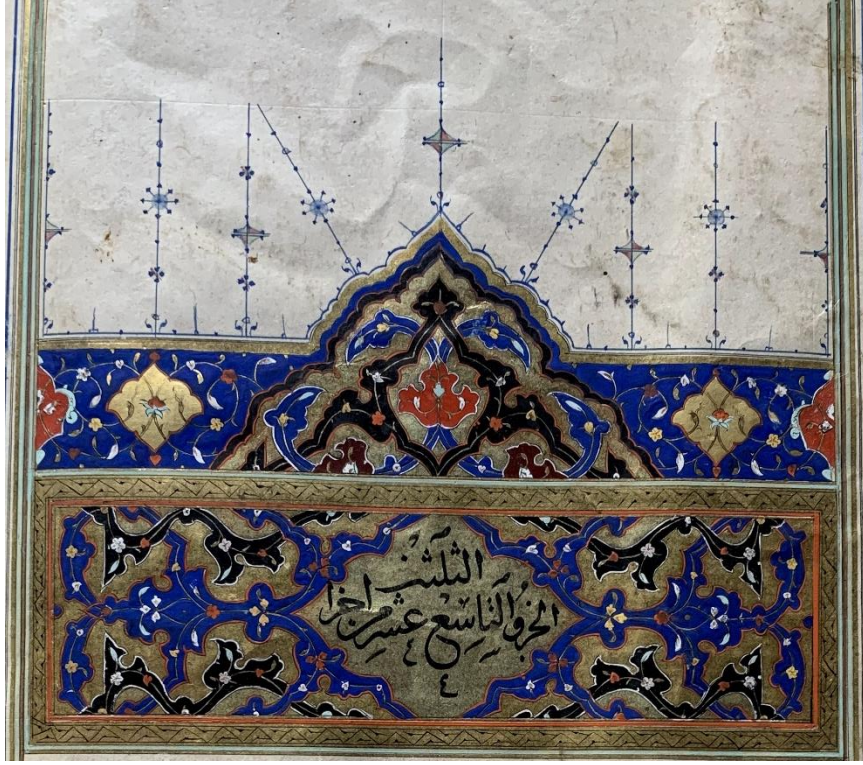 الجزو التاسع عشر من اجزا
الثلثين